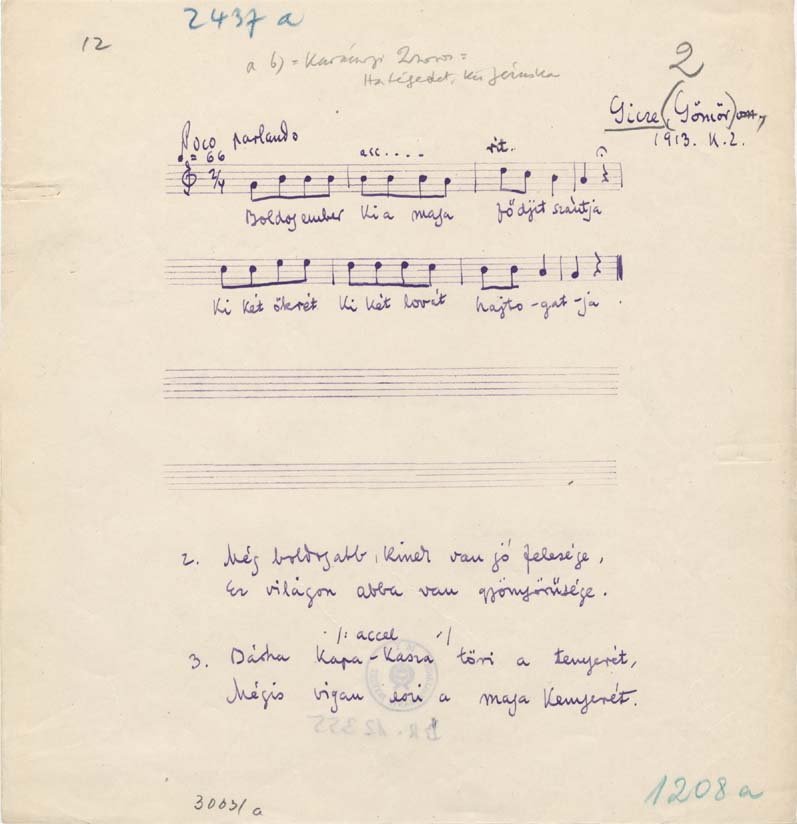 2437 a
12
a b) =
2
Gicze (Gömör)
1913. K. Z.
Poco parlando
= 66
acc....
rit..
2/4
Boldog ember Ki a maga fődjit szántja
Ki két ökrét Ki két lovát hajto-gat-ja.
2. Még boldogabb, Kinek van jó felesége,
Ez világon abba van gyönyörüsége.
/: accel :/
3. Bátha Kapa-Kasza töri a tenyerét,
Mégis vigan eszi a maga Kenyerét.
BR. 12355
30031/a
1208 a